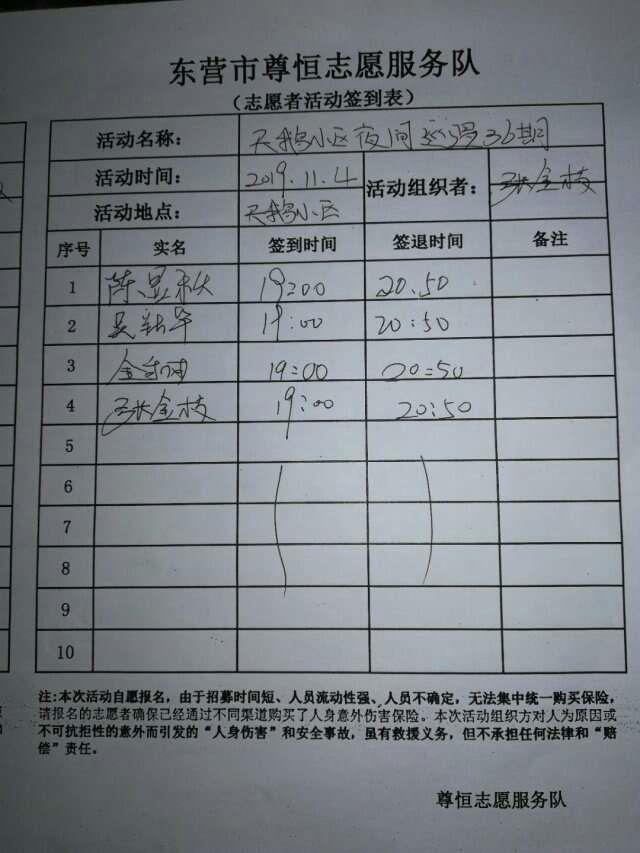 东营市尊恒志愿服务队
（志愿者活动签到表）
活动名称： 天鹅小区夜间巡逻36期
活动时间： 2019.11.4 活动组织者： 张金枝
活动地点： 天鹅小区
序号 实名 签到时间 签退时间 备注
1 陈显秋 19:00 20.50
2 吴新华 19:00 20:50
3 19:00 20:50
4 张金枝 19:00 20:50
5
6
7
8
9
10
注:本次活动自愿报名，由于招募时间短、人员流动性强、人员不确定，无法集中统一购买保险，
请报名的志愿者确保已经通过不同渠道购买了人身意外伤害保险。本次活动组织方对人为原因或
不可抗拒性的意外而引发的“人身伤害”和安全事故，虽有救援义务，但不承担任何法律和“赔
偿”责任。
尊恒志愿服务队